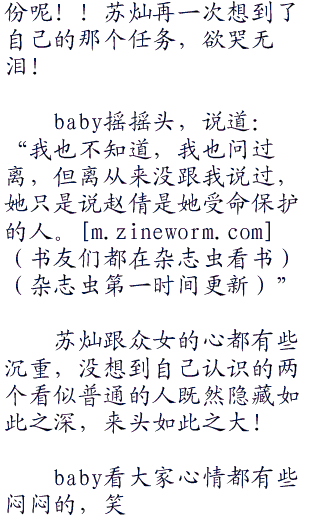 份呢！！苏灿再一次想到了
自己的那个任务，欲哭无
泪！
baby摇摇头，说道：
“我也不知道，我也问过
离，但离从来没跟我说过，
她只是说赵倩是她受命保护
的人。[m.zineworm.com]
（书友们都在杂志虫看书）
（杂志虫第一时间更新）”
苏灿跟众女的心都有些
沉重，没想到自己认识的两
个看似普通的人既然隐藏如
此之深，来头如此之大！
baby看大家心情都有些
闷闷的，笑